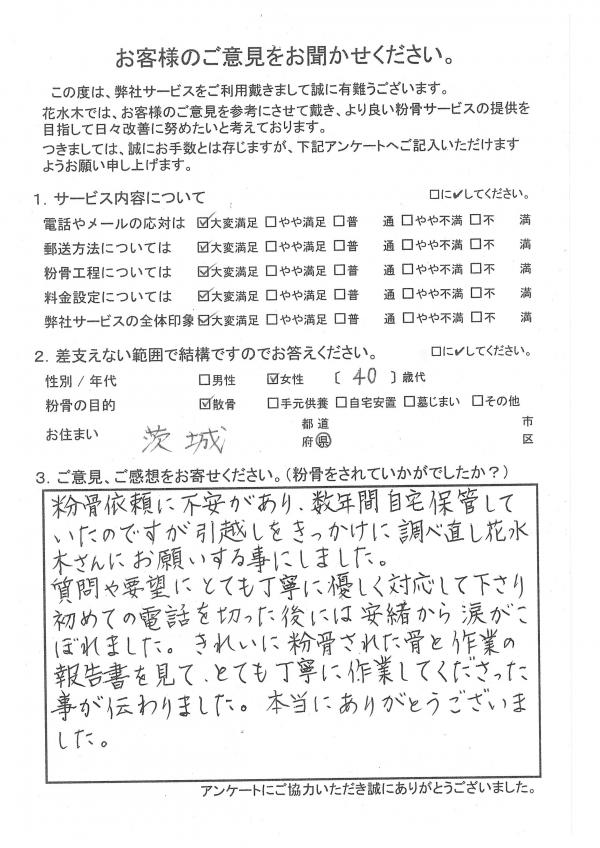 お客様のご意見をお聞かせください。
この度は、弊社サービスをご利用戴きまして誠に有難うございます。
花水木では、お客様のご意見を参考にさせて戴き、より良い粉骨サービスの提供を
目指して日々改善に努めたいと考えております。
つきましては、誠にお手数とは存じますが、下記アンケートへご記入いただけます
ようお願い申し上げます。
1. サービス内容について □に✔してください。
電話やメールの応対は ☑大変満足 □やや満足 □普 通 □やや不満 □不 満
郵送方法については ☑大変満足 □やや満足 □普 通 □やや不満 □不 満
粉骨工程については ☑大変満足 □やや満足 □普 通 □やや不満 □不 満
料金設定については ☑大変満足 □やや満足 □普 通 □やや不満 □不 満
弊社サービスの全体印象 ☑大変満足 □やや満足 □普 通 □やや不満 □不 満
2. 差支えない範囲で結構ですのでお答えください。 □に✔してください。
性別 / 年代 □男性 ☑女性 〔 40 〕歳代
粉骨の目的 ☑散骨 □手元供養 □自宅安置 □墓じまい □その他
お住まい 茨城 都 道 府 県 市 区
3. ご意見、ご感想をお寄せください。(粉骨をされていかがでしたか?)
粉骨依頼に不安があり、数年間自宅保管して
いたのですが引越しをきっかけに調べ直し花水
木さんにお願いする事にしました。
質問や要望にとても丁寧に優しく対応して下さり
初めての電話を切った後には安緒から涙がこ
ぼれました。きれいに粉骨された骨と作業の
報告書を見て、とても丁寧に作業してくださった
事が伝わりました。本当にありがとうございま
した。
アンケートにご協力いただき誠にありがとうございました。